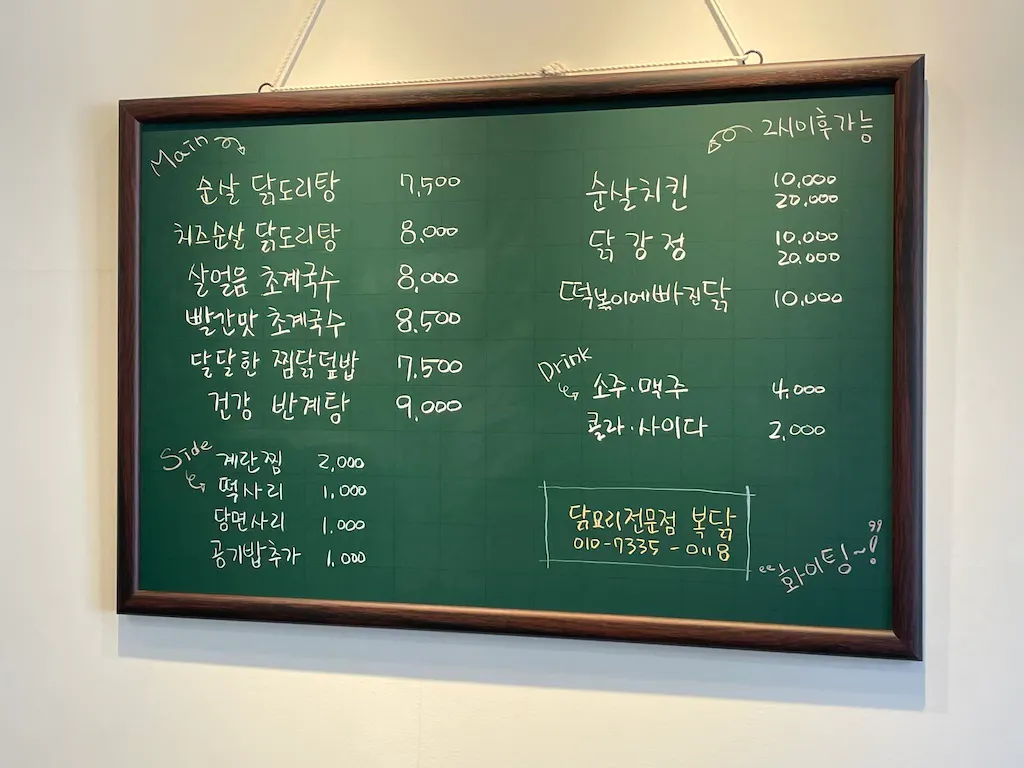 Main
순살 닭도리탕 7,500
치즈순살 닭도리탕 8,000
살얼음 초계국수 8,000
빨간맛 초계국수 8,500
달달한 찜닭덮밥 7,500
건강 반계탕 9,000
Side
계란찜 2,000
떡사리 1,000
당면사리 1,000
공기밥추가 1,000
2시이후가능
순살치킨 10,000
20,000
닭강정 10,000
20,000
떡볶이에빠진닭 10,000
Drink
소주·맥주 4,000
콜라·사이다 2,000
닭요리전문점 복닭
010-7335-0118
"화이팅~!"